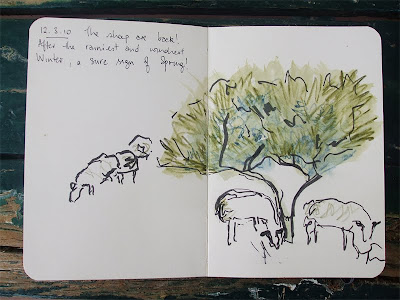 12.3.10 The sheep are back!
After the rainiest and windiest
Winter, a sure sign of Spring!